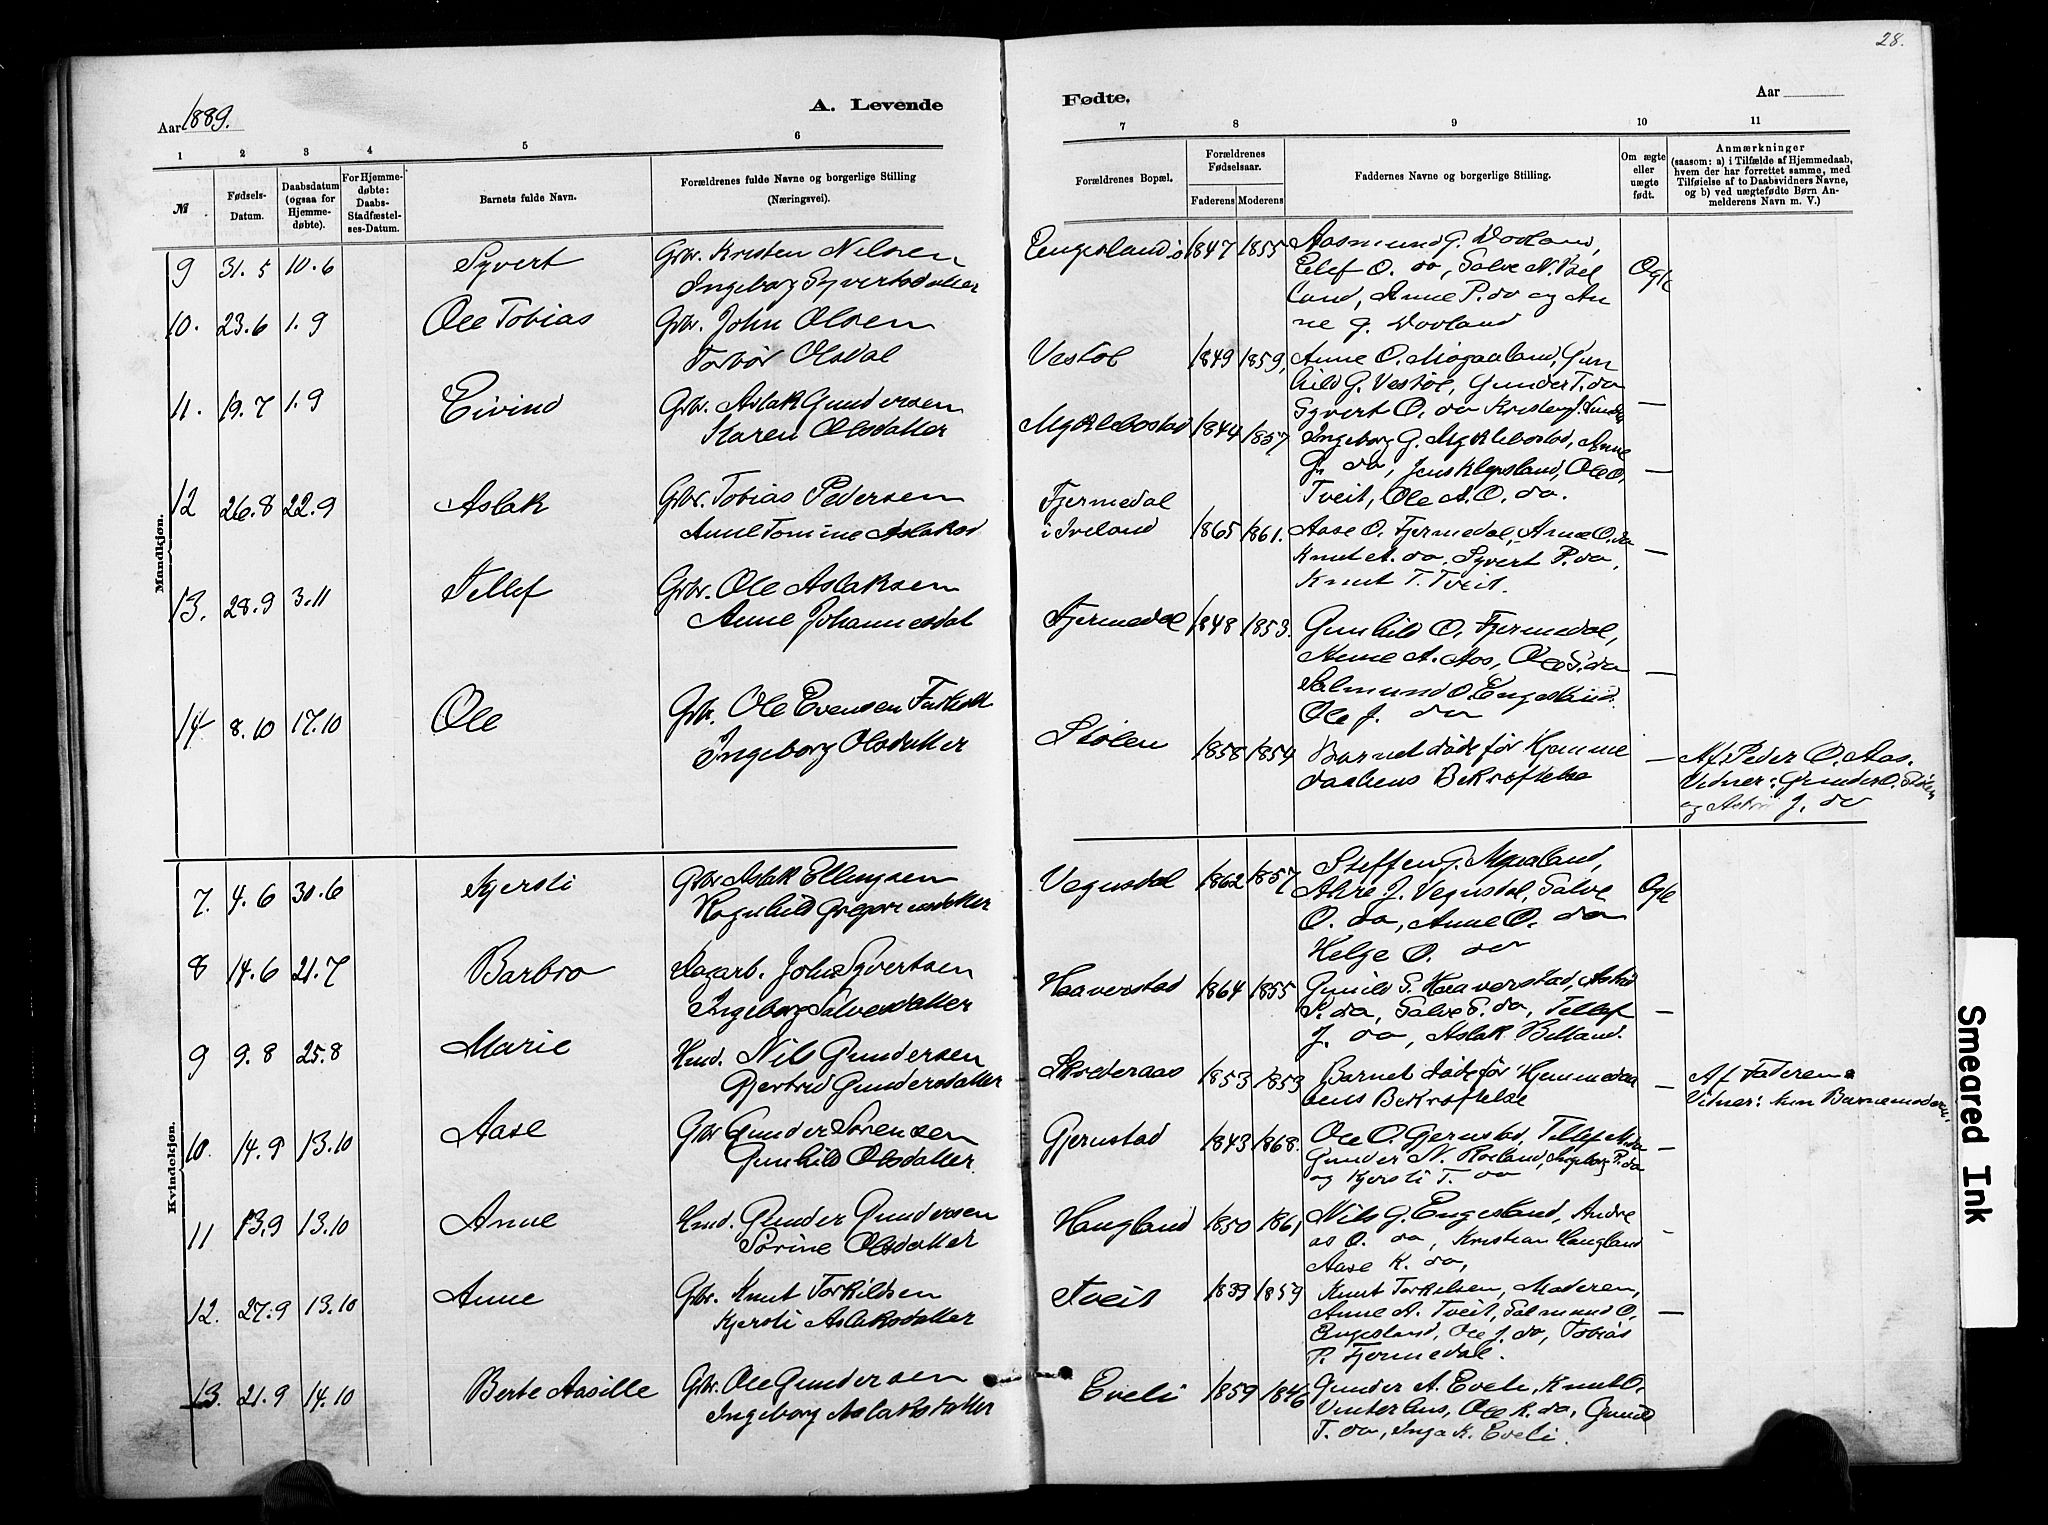 28.
Aar 1889.
A. Levende
Fødte.
Aar
1 2 3 4 5 6 7 8 9 10 11
№
Fødsels-Datum.
Daabsdatum (ogsaa for Hjemmedøbte).
For Hjemmedøbte: Daabs-Stadfæstelses-Datum.
Barnets fulde Navn.
Forældrenes fulde Navne og borgerlige Stilling
(Næringsvei).
Forældrenes Bopæl.
Forældrenes Fødselsaar.
Faderens Moderens
Faddernes Navne og borgerlige Stilling.
Om ægte eller uægte født.
Anmærkninger
(saasom: a) i Tilfælde af Hjemmedaab,
hvem der har forrettet samme, med
Tilføielse af to Daabsvidners Navne,
og b) ved uægtefødte Børn Anmelderens Navn m. V.)
Mandkjøn.
9 31.5 10.6 Syvert Gbr. Kristen Nilsen
Ingeborg Syvertsdatter
Engesland 1847 1855 Aasmund G. Dovland,
Elef O. do, Salve N. Bel
land, Anne P. do og An
ne G. Dovland
Ogte
10. 23.6 1.9 Ole Tobias Gbr. John Olsen
Torbør Olsdat
Vestøl 1849 1859, Anne O. Møgaaland, Gun
hild G. Vestøl, Gunder T. do
Syvert O. do
—
11. 19.7 1.9 Eivind Gbr. Aslak Gundersen
Karen Olsdatter
Myklebostad 1844 1857 Ingeborg G. Myklebostad, Anne
G. do, Jens Klepsland, Ole O.
Tveit, Ole A. O. do.
—
12 26.8 22.9 Aslak Gbr. Tobias Pedersen
Anne Tomine Aslaksd
Fjermedal
i Iveland 1865 1861. Aase O. Fjermedal, Anne O. do
Knut A. do, Syvert P. do,
Knut T. Tveit.
—
13. 28.9 3.11 Tellef Gbr. Ole Aslaksen
Anne Johannesdat
Fjermedal 1848 1853. Gunhild O. Fjermedal,
Anne A. Aas, Ole S. do
Salmund O. Engesland
Ole J. do
—
14 8.10 17.10 Ole Gbr. Ole Evensen
Ingeborg Olsdatter
Stølen 1858 1854 Barnet døde før Hjemme
daabens Bekræftelse
— Af Peder O. Aas.
Vidner: Gunder O. Stølen
og J. do
Kvindekjøn.
7. 4.6 30.6 Kjersti Gbr Aslak Ellingsen
Ragnhild Gregoriusdatter
Vegustøl 1862 1857 Steffen G.
J. Vegustøl, Salve
O. do, Anne O. do
Helge O. do
Ogte
8 14.6 21.7 Barbro Dagarb. John Syvertsen
Ingeborg Salvesdatter
Haaverstad 1864 1855 Gunild S. Haaverstad, Astrid
S. do, Salve S. do, Tellef
J. do, Aslak Billand.
—
9 9.8 25.8 Marie Hmd. Nils Gundersen
Gjertrud Gundersdatter
Skoderaas 1853 1853 Barnet døde før Hjemmedaa
bens Bekræftelse
— Af Faderen
Vidner: kun Barnemoderen.
10. 14.9 13.10 Aase Gbr Gunder Sørensen
Gunhild Olsdatter
Gjerustad 1843 1868. Ole O. Gjerustad, Tellef N. do
Gunder N. Røiland, Ingeborg P. do
og Kjersti T. do
—
11 13.9 13.10 Anne Hmd. Gunder Gundersen
Sørine Olsdatter
Haugland 1850 1861 Nils G. Engesland, Andre
as O. do, Kristian Haugland
Aase K. do,
—
12. 27.9 13.10 Anne Gbr. Knut Torkildsen
Kjersti Aslaksdatter
Tveit 1839 1859 Knut Torkelsen, Moderen,
Anne A. Tveit, Salmund O.
Engesland, Ole J. do, Tobias
P. Fjermedal.
—
13. 21.9 14.10 Berte Aasille Gbr. Ole Gundersen
Ingeborg Aslaksdatter
Eveli 1859 1846 Gunder A. Eveli, Knut O.
Vinterhus, Ole K. do, Gunild
T. do, Inga K. Eveli.
Smeared Ink